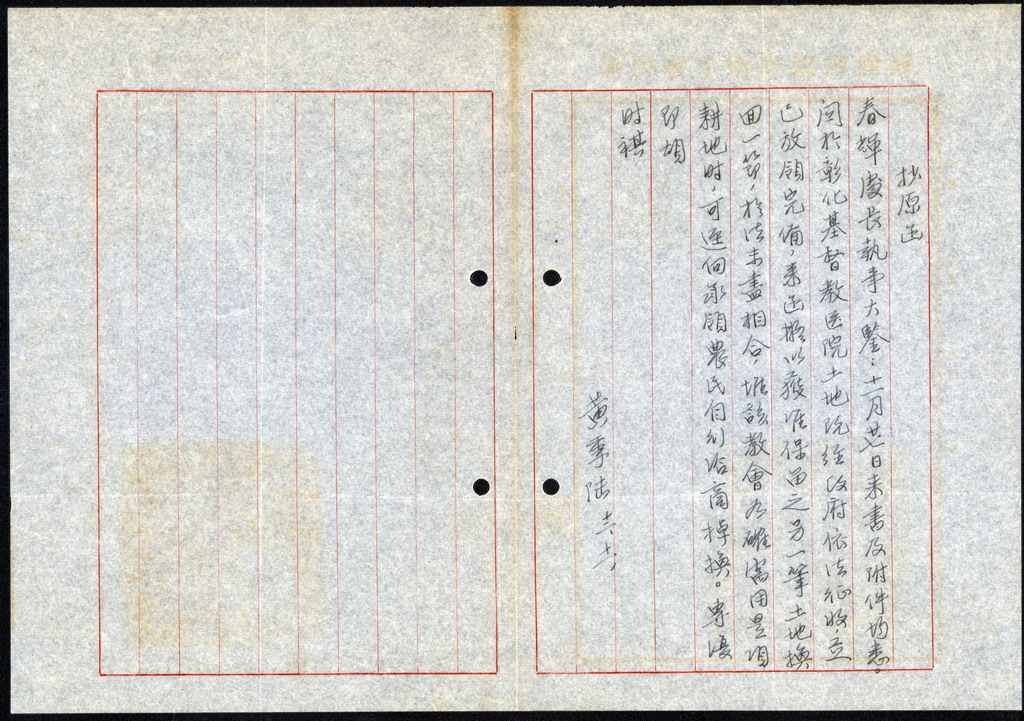 抄原函
春輝處長執事大鑒：十一月廿七日来書及附件均悉。
関於彰化基督教医院土地既經政府依法征收，並
已放領完備，来函擬以獲准保留之另一筆土地換
回一節，於法未盡相合，惟該教會为確需用是項
耕地时，可逕向承領農民自行洽商掉換。專復
即頌
时祺
黃季陸 十二、十、